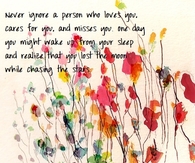 Never ignore a person who loves you,
cares for you, and misses you. one day
you might wake up from your sleep
and realize that you lost the moon
while chasing the stars